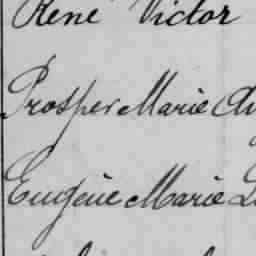 René Victor
Prosper Marie
Eugène Marie